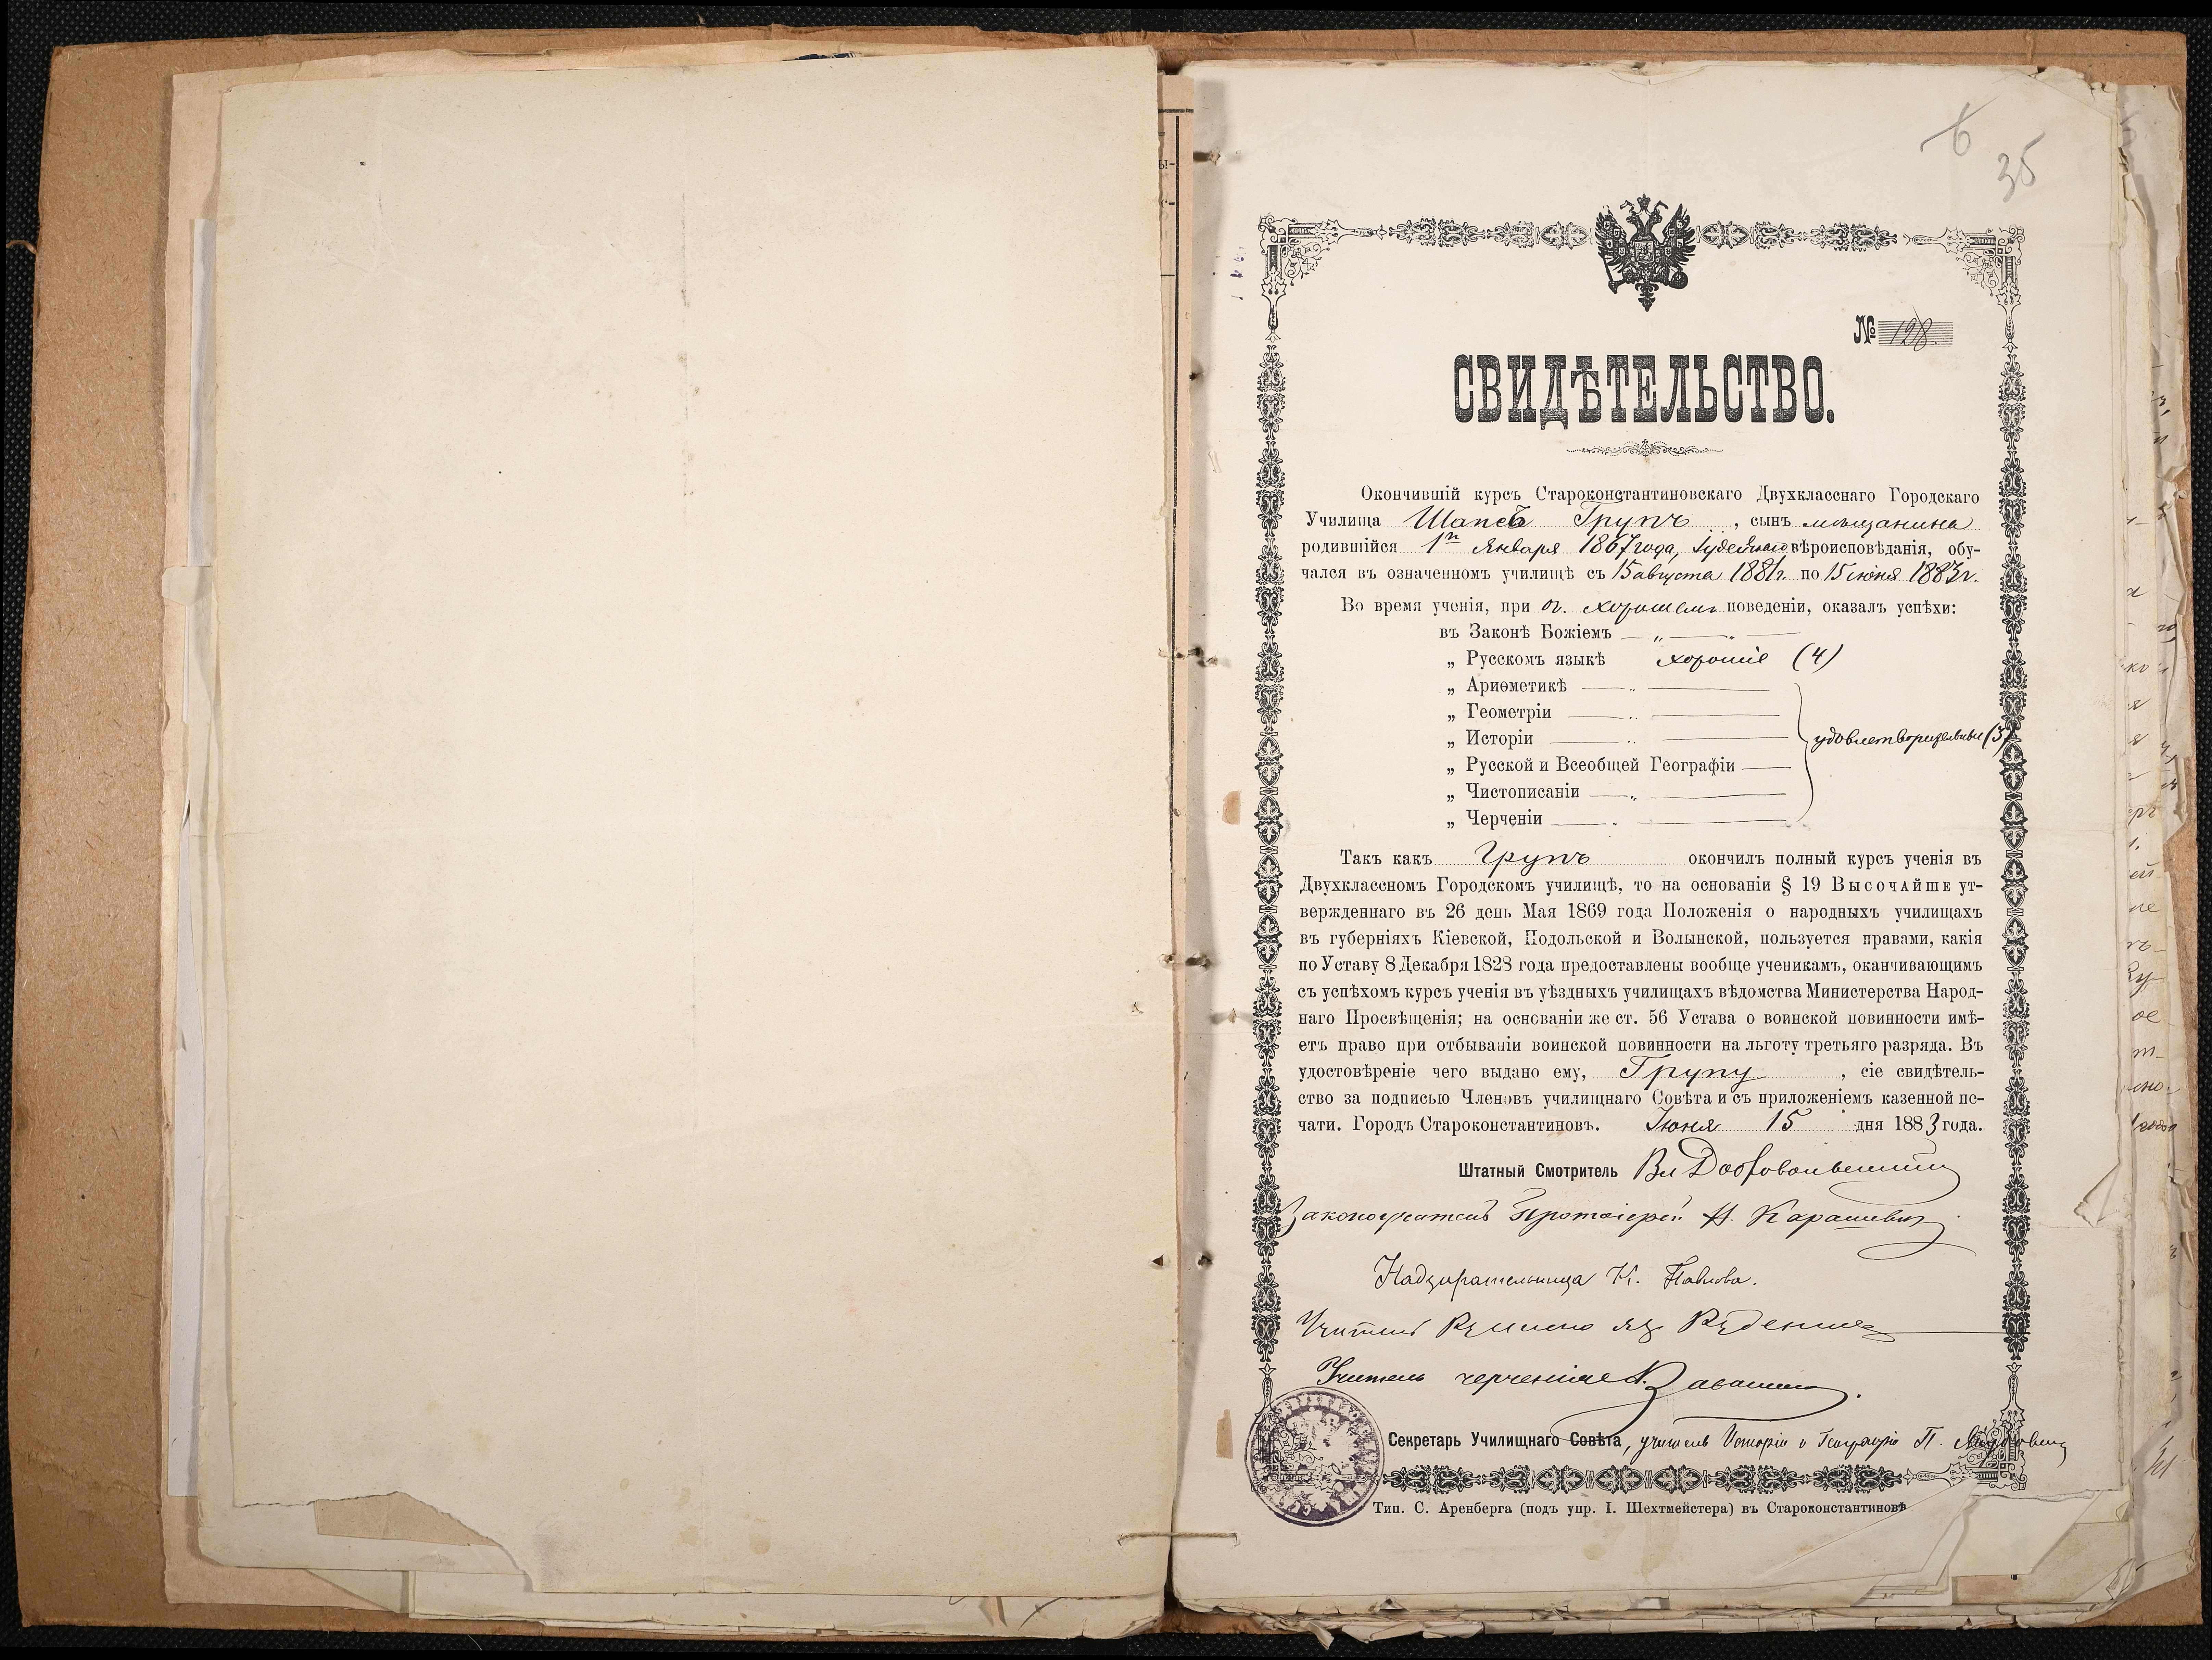 6
35
№ 128.
СВИДѢТЕЛЬСТВО.
Окончившій курсъ Староконстантиновскаго Двухкласснаго Городскаго
Училища Шапсъ Групъ, сынъ мѣщанина
родившійся 1го Января 1867 года, Іудейскаго вѣроисповѣданія, обу-
чался въ означенномъ училищѣ съ 15 августа 1881 г. по 15 іюня 1883 г.
Во время ученія, при хорошемъ поведеніи, оказалъ успѣхи:
въ Законѣ Божіемъ — „ — „ —
„ Русскомъ языкѣ хорошіе (4)
„ Ариѳметикѣ
„ Геометріи
„ Исторіи
удовлетворительные (3)
„ Русской и Всеобщей Географіи
„ Чистописаніи
„ Черченіи
Такъ какъ Групъ окончилъ полный курсъ ученія въ
Двухклассномъ Городскомъ училищѣ, то на основаніи § 19 Высочайше ут-
вержденнаго въ 26 день Мая 1869 года Положенія о народныхъ училищахъ
въ губерніяхъ Кіевской, Подольской и Волынской, пользуется правами, какія
по Уставу 8 Декабря 1828 года предоставлены вообще ученикамъ, оканчивающимъ
съ успѣхомъ курсъ ученія въ уѣздныхъ училищахъ вѣдомства Министерства Народ-
наго Просвѣщенія; на основаніи же ст. 56 Устава о воинской повинности имѣ-
етъ право при отбываніи воинской повинности на льготу третьяго разряда. Въ
удостовѣреніе чего выдано ему, Групу, сіе свидѣтель-
ство за подписью Членовъ училищнаго Совѣта и съ приложеніемъ казенной пе-
чати. Городъ Староконстантиновъ. Іюня 15 дня 1883 года.
Штатный Смотритель Вл
Законоучитель Протоіерей Н. Карашевич
Надзирательница К. Павлова.
Учитель
Учитель черченія
Секретарь Училищнаго Совѣта, учитель Исторіи и Географіи П.
Тип. С. Аренберга (подъ упр. І. Шехтмейстера) въ Староконстантиновѣ